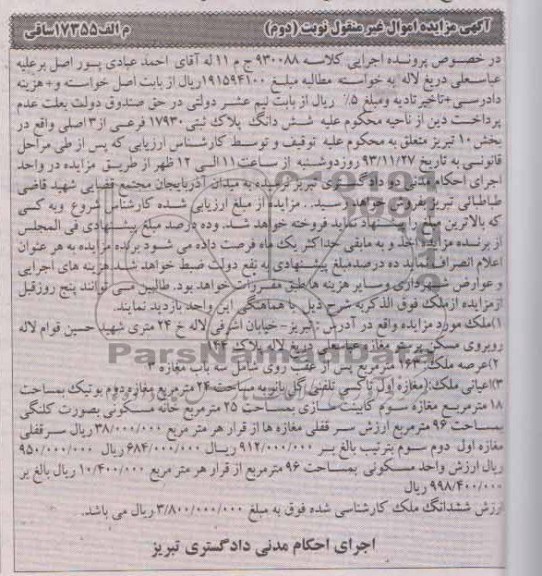 آگهی مزایده اموال غیر منقول نوبت (دوم) م الف ۱۷۳۵۵ساقی
در خصوص پرونده اجرایی کلاسه ۹۳۰۰۸۸ ج م ۱۱ له آقای احمد عبادی پور اصل بر علیه
عباسعلی دریغ لاله به خواسته مطالبه مبلغ ۱۹۱۵۹۴۱۰۰ریال از بابت اصل خواسته و+ هزینه
دادرسی+تاخیر تادیه ومبلغ ۵٪ ریال از بابت نیم عشر دولتی در حق صندوق دولت بعلت عدم
پرداخت دین از ناحیه محکوم علیه شش دانگ پلاک ثبتی ۱۷۹۳۰ فرعی از ۳ اصلی واقع در
بخش ۱۰ تبریز متعلق به محکوم علیه توقیف و توسط کارشناس ارزیابی که پس از طی مراحل
قانونی به تاریخ ۹۳/۱۱/۲۷ روز دوشنبه از ساعت ۱۱ الی ۱۲ ظهر از طریق مزایده در واحد
اجرای احکام مدنی دو دادگستری تبریز نرسیده به میدان آذربایجان مجتمع قضایی شهید قاضی
طباطبائی تبریز بفروش خواهد رسید.. مزایده از مبلغ ارزیابی شده کارشناس شروع وبه کسی
که بالاترین را پیشنهاد نماید فروخته خواهد شد. وده درصد مبلغ پیشنهادی فی المجلس
از برنده مزایده اخذ و به مابقی حداکثر یک ماه فرصت داده می شود برنده مزایده به هر عنوان
اعلام انصراف نماید ده درصدمبلغ پیشنهادی به نفع دولت ضبط خواهد شد.هزینه های اجرایی
و عوارض شهرداری وسایر هزینه ها طبق مقررات خواهد بود. طالبین می توانند پنج روزقبل
ازمزایده ازملک فوق الذکربه شرح ذیل با هماهنگی این واحد بازدید نمایند.
۱)ملک مورد مزایده واقع در آدرس : تبریز - خیابان اشرفی لاله خ ۲۴ متری شهید حسین قوام لاله
روبروی مسکن پرستو مغازه عباسعلی دریغ لاله پلاک ۱۴۴
۲)عرصه ملک: ۱۶۳ مترمربع پس از عقب روی شامل سه باب مغازه ۳
۳)اعیانی ملک:(مغازه اول تاکسی تلفنی گل بانو به مساحت ۲۴ مترمربع مغازه دوم بوتیک بمساحت
۱۸ مترمربع مغازه سوم کابینت سازی بمساحت ۲۵ مترمربع خانه مسکونی بصورت کلنگی
بمساحت ۹۶ مترمربع ارزش سر قفلی مغازه ها از قرار هر متر مربع ۳۸/۰۰۰/۰۰۰ ریال سرقفلی
مغازه اول دوم سوم بترتیب بالغ بر ۹۱۲/۰۰۰/۰۰۰ ریال ۶۸۴/۰۰۰/۰۰۰ ریال ۹۵۰/۰۰۰/۰۰۰
ریال ارزش واحد مسکونی بمساحت ۹۶ مترمربع از قرار هر متر مربع ۱۰/۴۰۰/۰۰۰ ریال بالغ بر
۹۹۸/۴۰۰/۰۰۰ ریال
ارزش ششدانگ ملک کارشناسی شده فوق به مبلغ ۳/۸۰۰/۰۰۰/۰۰۰ ریال می باشد.
اجرای احکام مدنی دادگستری تبریز
ParsNamadData